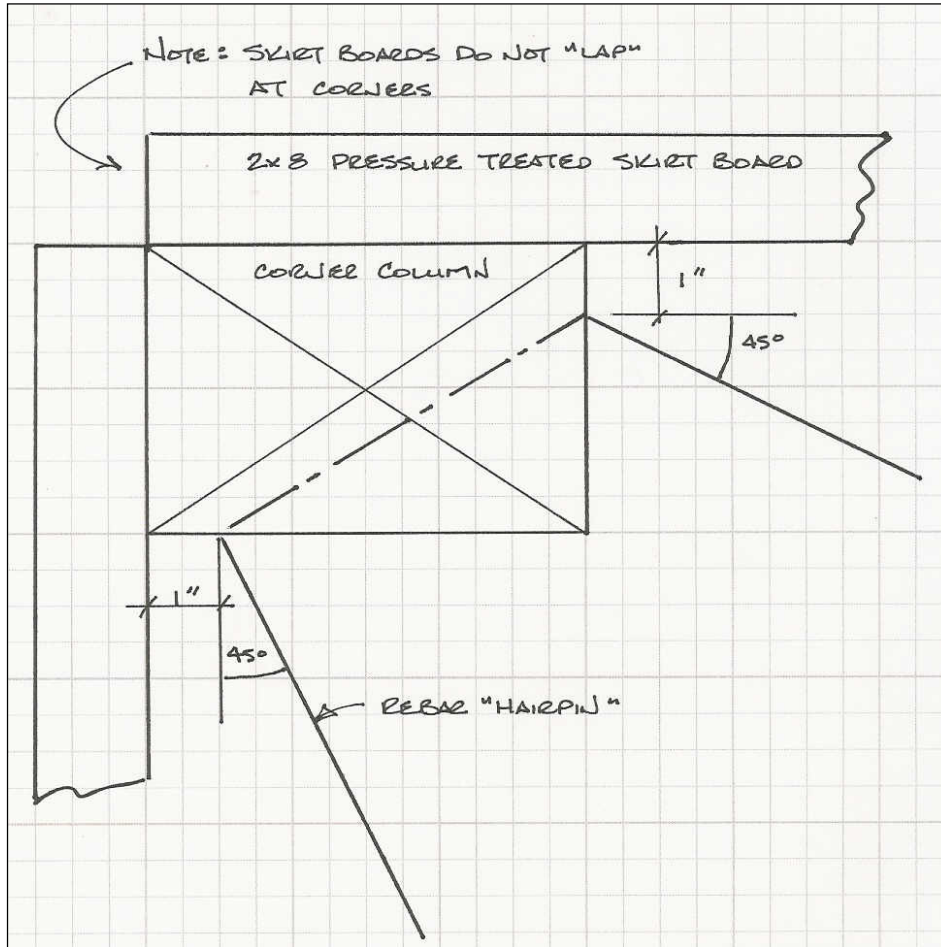 NOTE: SKIRT BOARDS DO NOT "LAP"
AT CORNERS
2x8 PRESSURE TREATED SKIRT BOARD
CORNER COLUMN
1"
45°
1"
45°
REBAR "HAIRPIN"